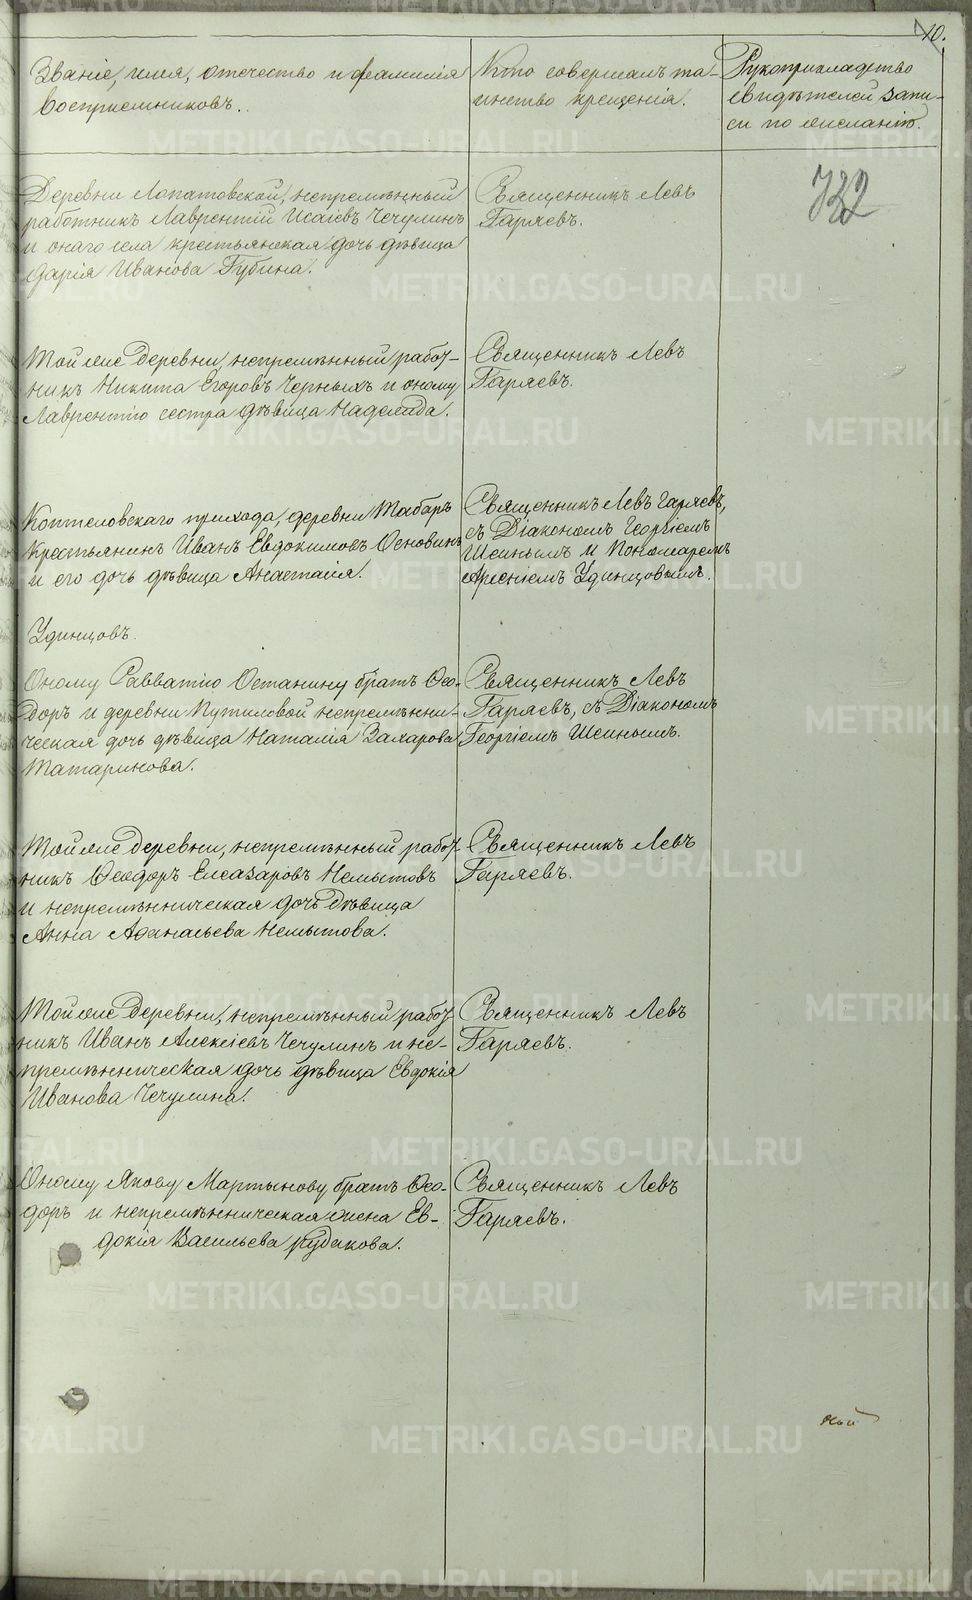 10.
Званіе, имя, отечество и фамилія
воспріемниковъ.
Кто совершалъ та-
инство крещенія.
Рукоприкладство
свидѣтелей запи-
си по желанію.
732
Деревни Лопатовской, непремѣнный
работникъ Лаврентій Исаіевъ Чечулинъ
и онаго села крестьянская дочь дѣвица
Дарія Иванова Губина.
Священникъ Левъ
Гаряевъ.
Той же деревни, непремѣнный работ-
никъ Никита Егоровъ Черныхъ и оному
Лаврентію сестра дѣвица Надежда.
Священникъ Левъ
Гаряевъ.
Коптеловскаго прихода, деревни Таборъ
крестьянинъ Иванъ Евдокимовъ Основинъ
и его дочь дѣвица Анастасія.
Священникъ Левъ Гаряевъ,
съ Діакономъ Георгіемъ
Шеинымъ и Пономаремъ
Арсеніемъ Удинцовымъ.
Удинцовъ.
Оному Савватію Останину братъ Ѳео-
доръ и деревни Путиловой непремѣнни-
ческая дочь дѣвица Наталія Захарова
Татаринова.
Священникъ Левъ
Гаряевъ, съ Діакономъ
Георгіемъ Шеинымъ.
Той же деревни, непремѣнный работ-
никъ Ѳеодоръ Елеазаровъ Немытовъ
и непремѣнническая дочь дѣвица
Анна Аѳанасьева Немытова.
Священникъ Левъ
Гаряевъ.
Той же деревни, непремѣнный работ-
никъ Иванъ Алексіевъ Чечулинъ и не-
премѣнническая дочь дѣвица Евдокія
Иванова Чечулина.
Священникъ Левъ
Гаряевъ.
Оному Якову Мартынову братъ Ѳео-
доръ и непремѣнническая жена Ев-
докія Васильева Рудакова.
Священникъ Левъ
Гаряевъ.
METRIKI.GASO-URAL.RU